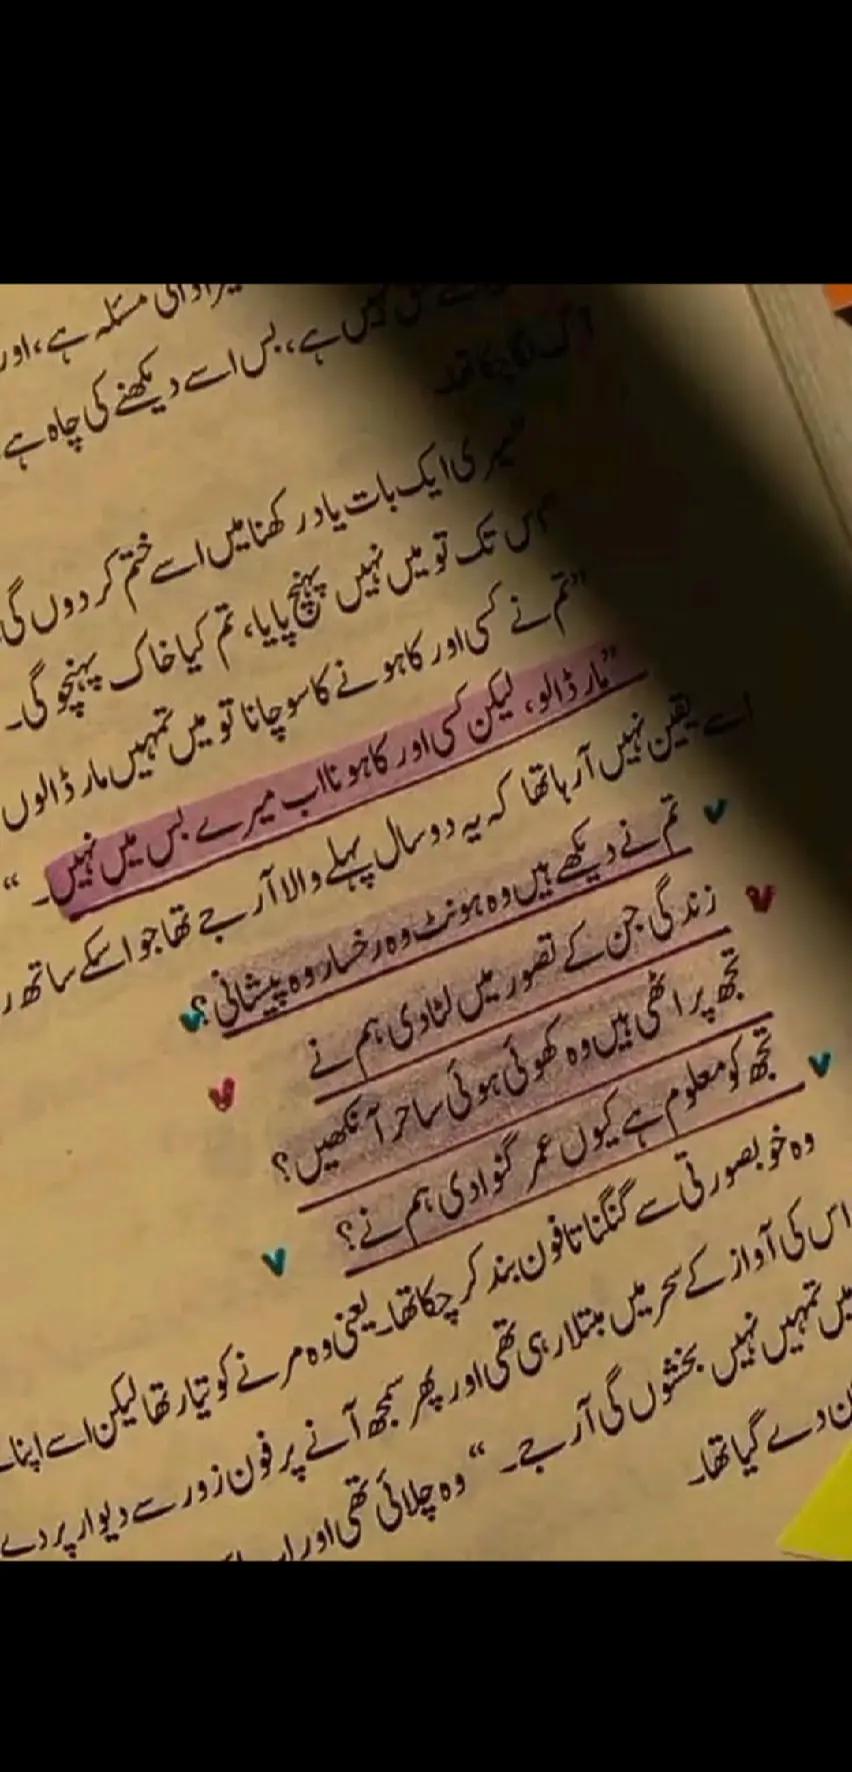 مسئلہ ہے، اور
نہیں ہے، بس اسے دیکھنے کی چاہ ہے
میری ایک بات یاد رکھنا میں اسے ختم کر دوں گی
اس تک تو میں نہیں پہنچ پایا، تم کیا خاک پہنچو گی۔
"تم نے کسی اور کا ہونے کا سوچا نا تو میں تمہیں مار ڈالوں
"مار ڈالو، لیکن کسی اور کا ہونا اب میرے بس میں نہیں۔"
اسے یقین نہیں آرہا تھا کہ یہ دو سال پہلے والا آر جے تھا جو اسکے ساتھ ر
تم نے دیکھے ہیں وہ ہونٹ وہ رخسار وہ پیشانی؟
زندگی جن کے تصور میں لٹا دی ہم نے
تجھ پر اٹھی ہیں وہ کھوئی ہوئی ساحر آنکھیں؟
تجھ کو معلوم ہے کیوں عمر گنوا دی ہم نے؟
وہ خوبصورتی سے گنگناتا فون بند کر چکا تھا۔ یعنی وہ مرنے کو تیار تھا لیکن اسے اپنا
اس کی آواز کے سحر میں مبتلا رہی تھی اور پھر سمجھ آنے پر فون زور سے دیوار پر دے
میں تمہیں نہیں بخشوں گی آر جے۔" وہ چلائی تھی اور
دے گیا تھا۔